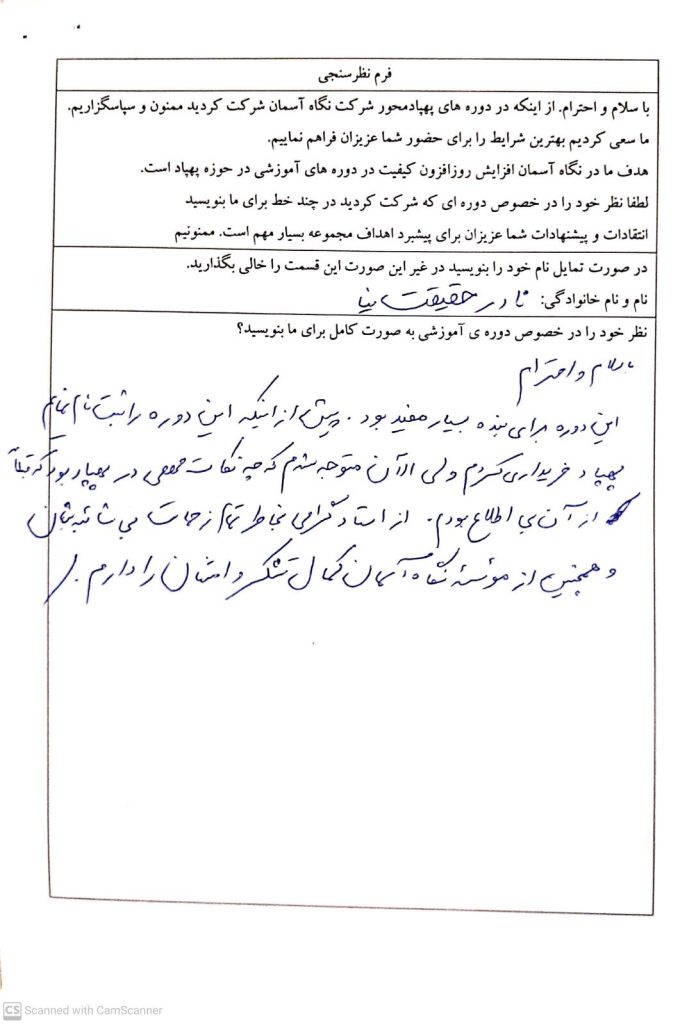 فرم نظرسنجی
با سلام و احترام. از اینکه در دوره های پهپادمحور شرکت نگاه آسمان شرکت کردید ممنون و سپاسگزاریم.
ما سعی کردیم بهترین شرایط را برای حضور شما عزیزان فراهم نماییم.
هدف ما در نگاه آسمان افزایش روزافزون کیفیت در دوره های آموزشی در حوزه پهپاد است.
لطفا نظر خود را در خصوص دوره ای که شرکت کردید در چند خط برای ما بنویسید
انتقادات و پیشنهادات شما عزیزان برای پیشبرد اهداف مجموعه بسیار مهم است. ممنونیم
در صورت تمایل نام خود را بنویسید در غیر این صورت این قسمت را خالی بگذارید.
نام و نام خانوادگی: نادر حقیقت نیا
نظر خود را در خصوص دوره ی آموزشی به صورت کامل برای ما بنویسید؟
باسلام و احترام
این دوره برای بنده بسیار مفید بود. پیش از اینکه این دوره را ثبت نام نمایم
پهپاد خریداری کردم ولی از آن متوجه شدم که چه نکات مهمی در پهپاد بود که قبلاً
از آن بی اطلاع بودم. از استاد گرامی بخاطر تمام زحمات بی شائبه شان
و همچنین از مؤسسۀ نگاه آسمان کمال تشکر و امتنان را دارم.
CS Scanned with CamScanner